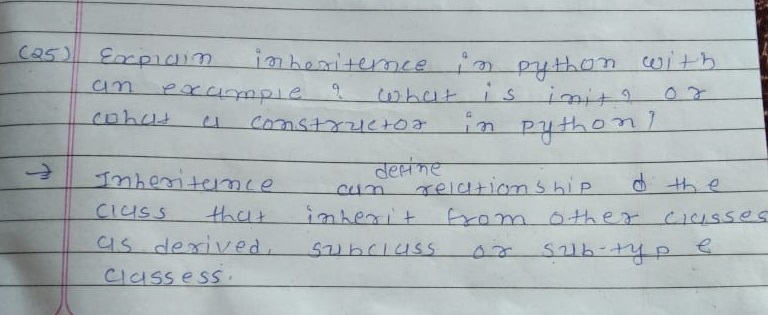 (25) Explain inheriternce in python with
an example? what is init? or
what is constructor in python?
→ Inheriternce can define relationship of the
class that inherit from other classes
as derived, subclass or sub-type
classess.